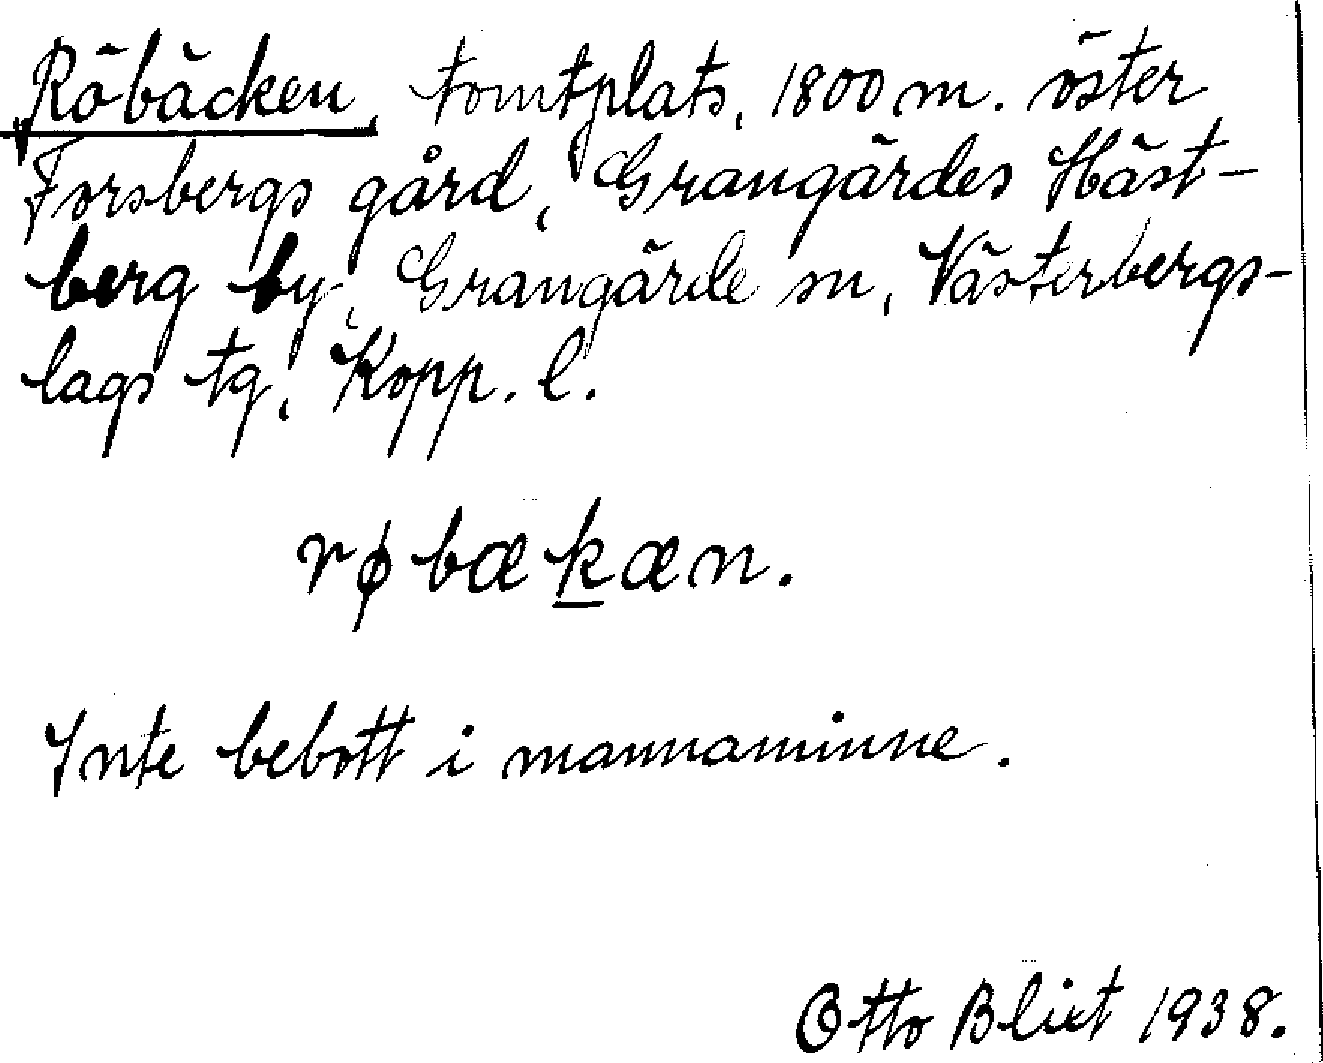 Röbäcken, tomtplats, 1800 m. öster
Forsbergs gård, Grangärdes Häst-
berg by, Grangärde sn, Västerbergs-
lags tg, Kopp. l.
røbækæn.
Inte bebott i mannaminne.
Otto Blixt 1938.